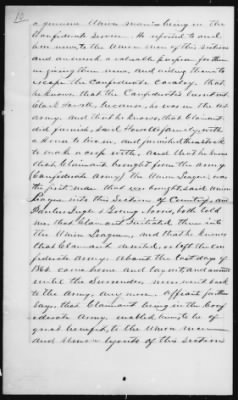 10
a genuine Union man being in the
Confederate Service. He reported to and
him news to the Union men of this section
and answered a valuable purpose for them
in giving them news, and aiding them to
escape the Confederate Cavalry, that
he knows, that the Confederates burnt out
Clark because, he was in the US.
army, and that he knows, that Claimant
did furnish, said family, with
a home to live in, and furnished them
to make a crop with, And that he knows
that Claimant brought from the army
(Confederate Army) the Union League. was
the first man that ever brought, said Union
League into this Section of Country, and
both told
me, that Claimant Initiated them into
the Union League, and that he knows
that Claimant deserted, or left the Con-
federate Army, about the last days of
1864 came home and lay out, and
until the Surrender, never went back
to the Army, any more. Affiant further
says, that Claimant being in the Conf
ederate Army, enabled him to be of
great benefit, to the Union men
and Union of this section